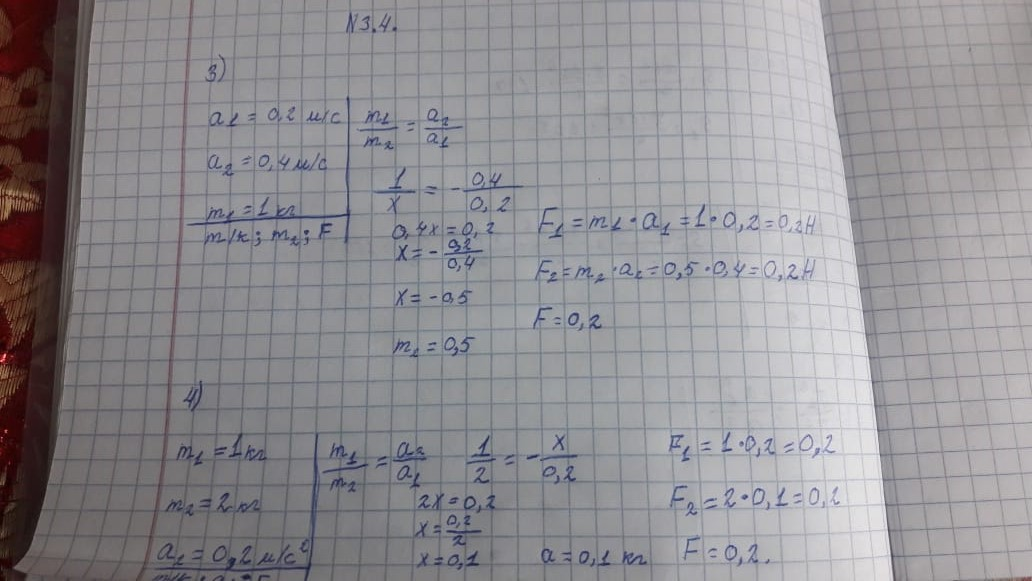 N3.4.
3)
a1 = 0,2 м/с
a2 = 0,4 м/с
m1 = 1 кг
m/к; m2; F
m1/m2 = a2/a1
1/x = - 0,4/0,2
0,4x = 0,2
x = - 0,2/0,4
x = -0,5
m2 = 0,5
F1 = m1 · a1 = 1 · 0,2 = 0,2 Н
F2 = m2 · a2 = 0,5 · 0,4 = 0,2 Н
F = 0,2
4)
m1 = 1 кг
m2 = 2 кг
a1 = 0,2 м/с²
m1/m2 = a2/a1
1/2 = - x/0,2
2x = 0,2
x = 0,2/2
x = 0,1
a = 0,1 кг
F1 = 1 · 0,2 = 0,2
F2 = 2 · 0,1 = 0,2
F = 0,2.